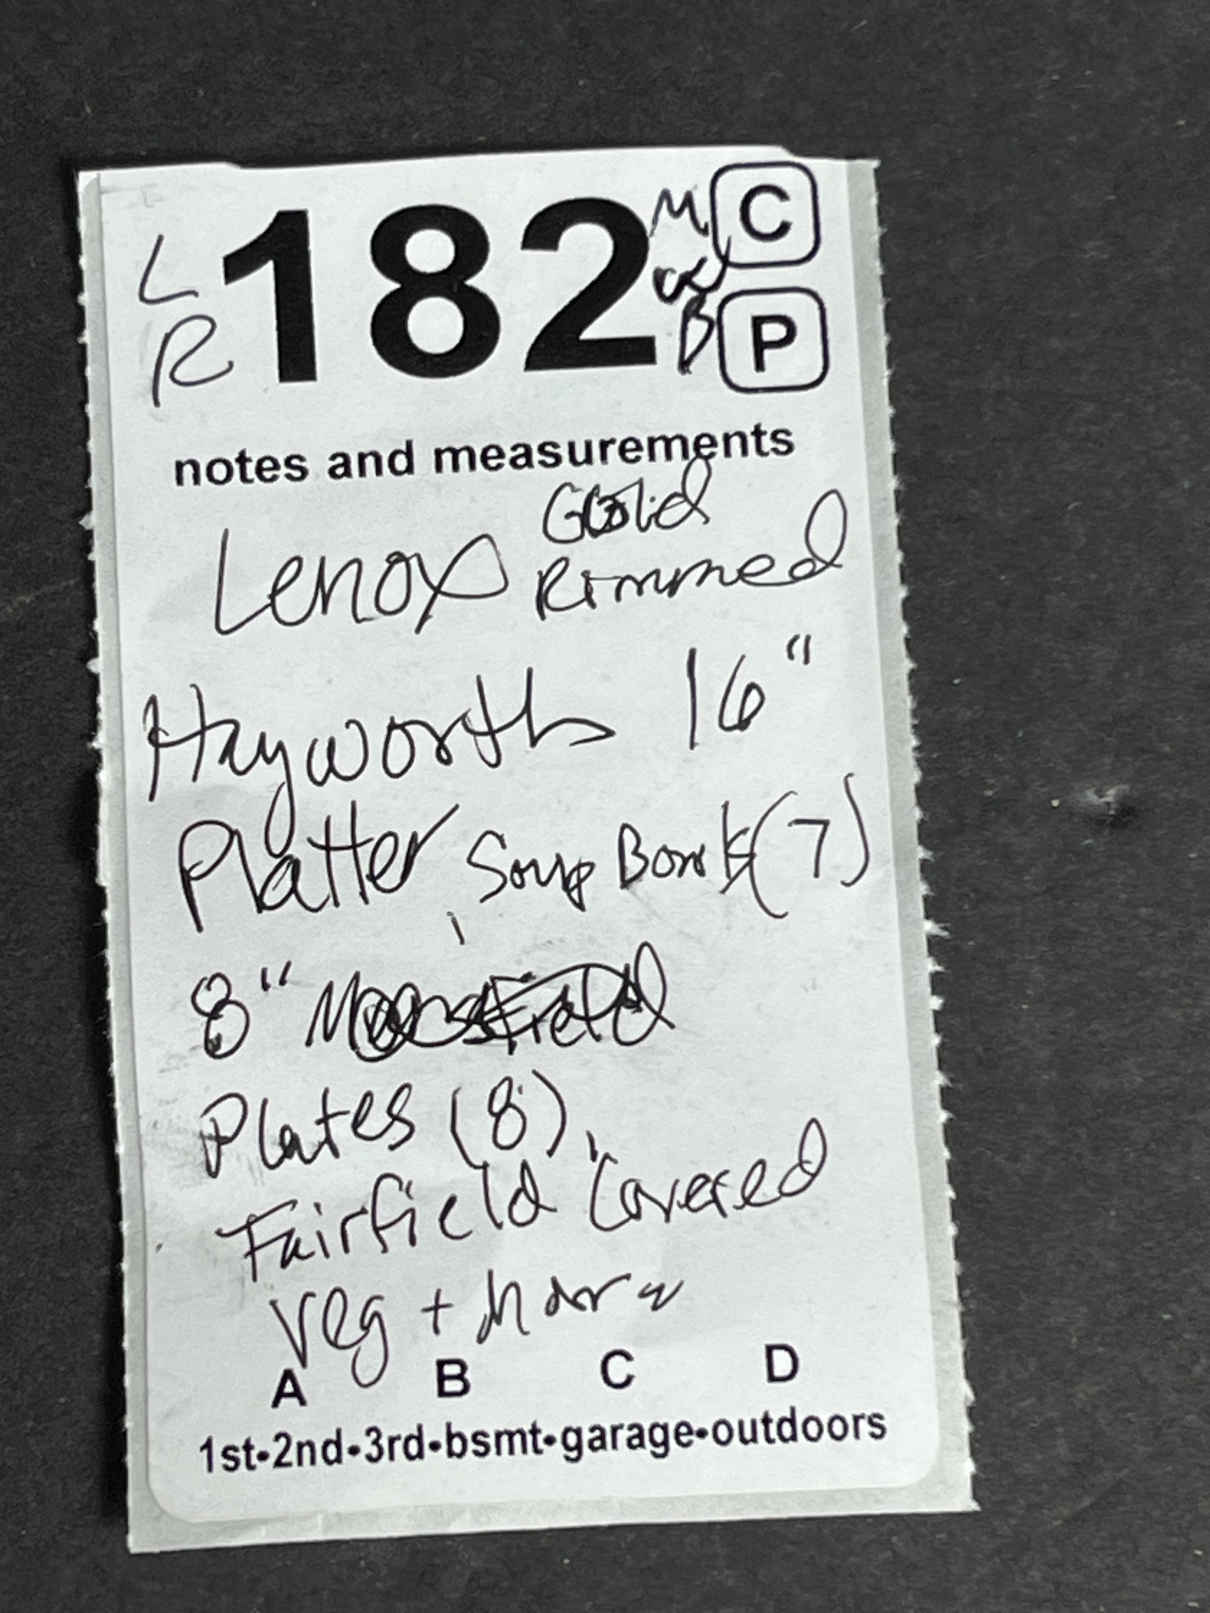 L
R
182
M
&
B
C
P
notes and measurements
Lenox Gold
Rimmed
Hayworth 16"
Platter, Soup Bowls (7)
8"
Plates (8),
Fairfield Covered
Veg + more
A B C D
1st-2nd-3rd-bsmt-garage-outdoors